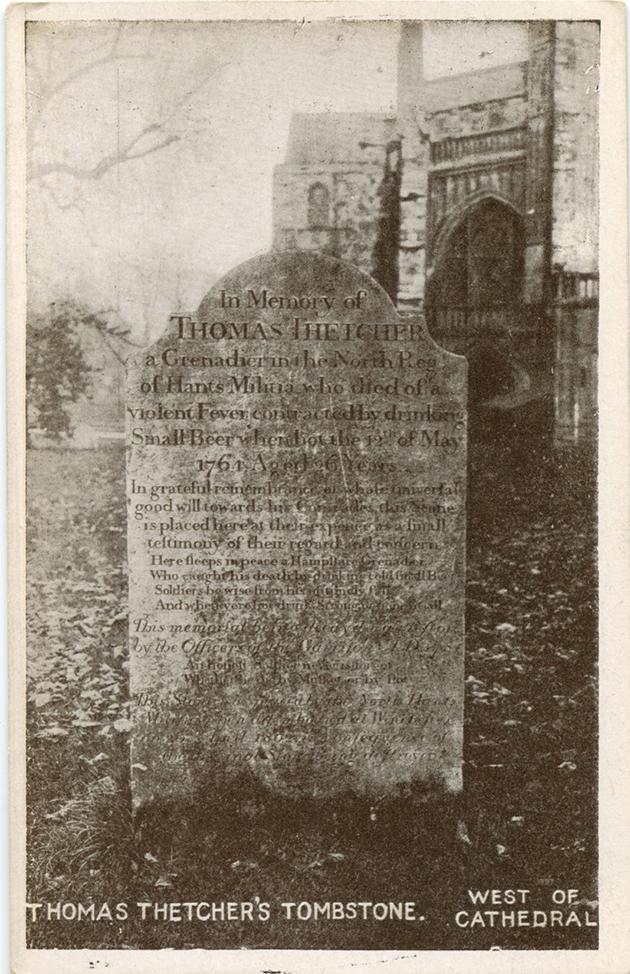 In Memory of
THOMAS THETCHER
a Grenadier in the North Reg.
of Hants Militia, who died of a
violent Fever contracted by drinking
Small Beer when hot the 12th of May
1764. Aged 26 Years.
In grateful remembrance of whose universal
good will towards his Comrades, this Stone
is placed here at their expence, as a small
testimony of their regard and concern.
Here sleeps in peace a Hampshire Grenadier,
Who caught his death by drinking cold small Beer
Soldiers be wise from his untimely fall
And when yere hot drink Strong or none at all.
This memorial being decay'd was restor'd
by the Officers of the Garrison A.D. 1781
An honest Soldier never is forgot
Whether he die by Musket or by Pot.
This Stone was placed by the North Hants
Militia when disembodied at Winchester
in consequence of
the original Stone being destroyed
THOMAS THETCHER'S TOMBSTONE.
WEST OF
CATHEDRAL